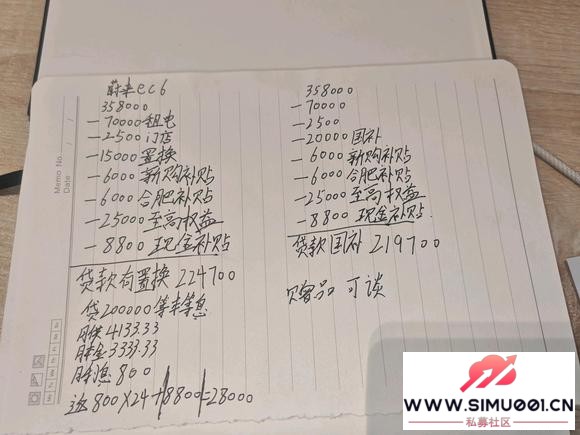 蔚来ec6
358000
-70000租电
-2500门店
-15000置换
-6000新购补贴
-6000合肥补贴
-25000至高权益
-8800现金补贴
贷款有置换 224700
贷200000等本等息
月供4133.33
月本金3333.33
月利息800
送800×24+8800=28000
358000
-70000
-2500
-20000国补
-6000新购补贴
-6000合肥补贴
-25000至高权益
-8800现金补贴
贷款国补219700
赠品可谈
Memo No.
Date
WWW.SIMU001.CN
私募社区